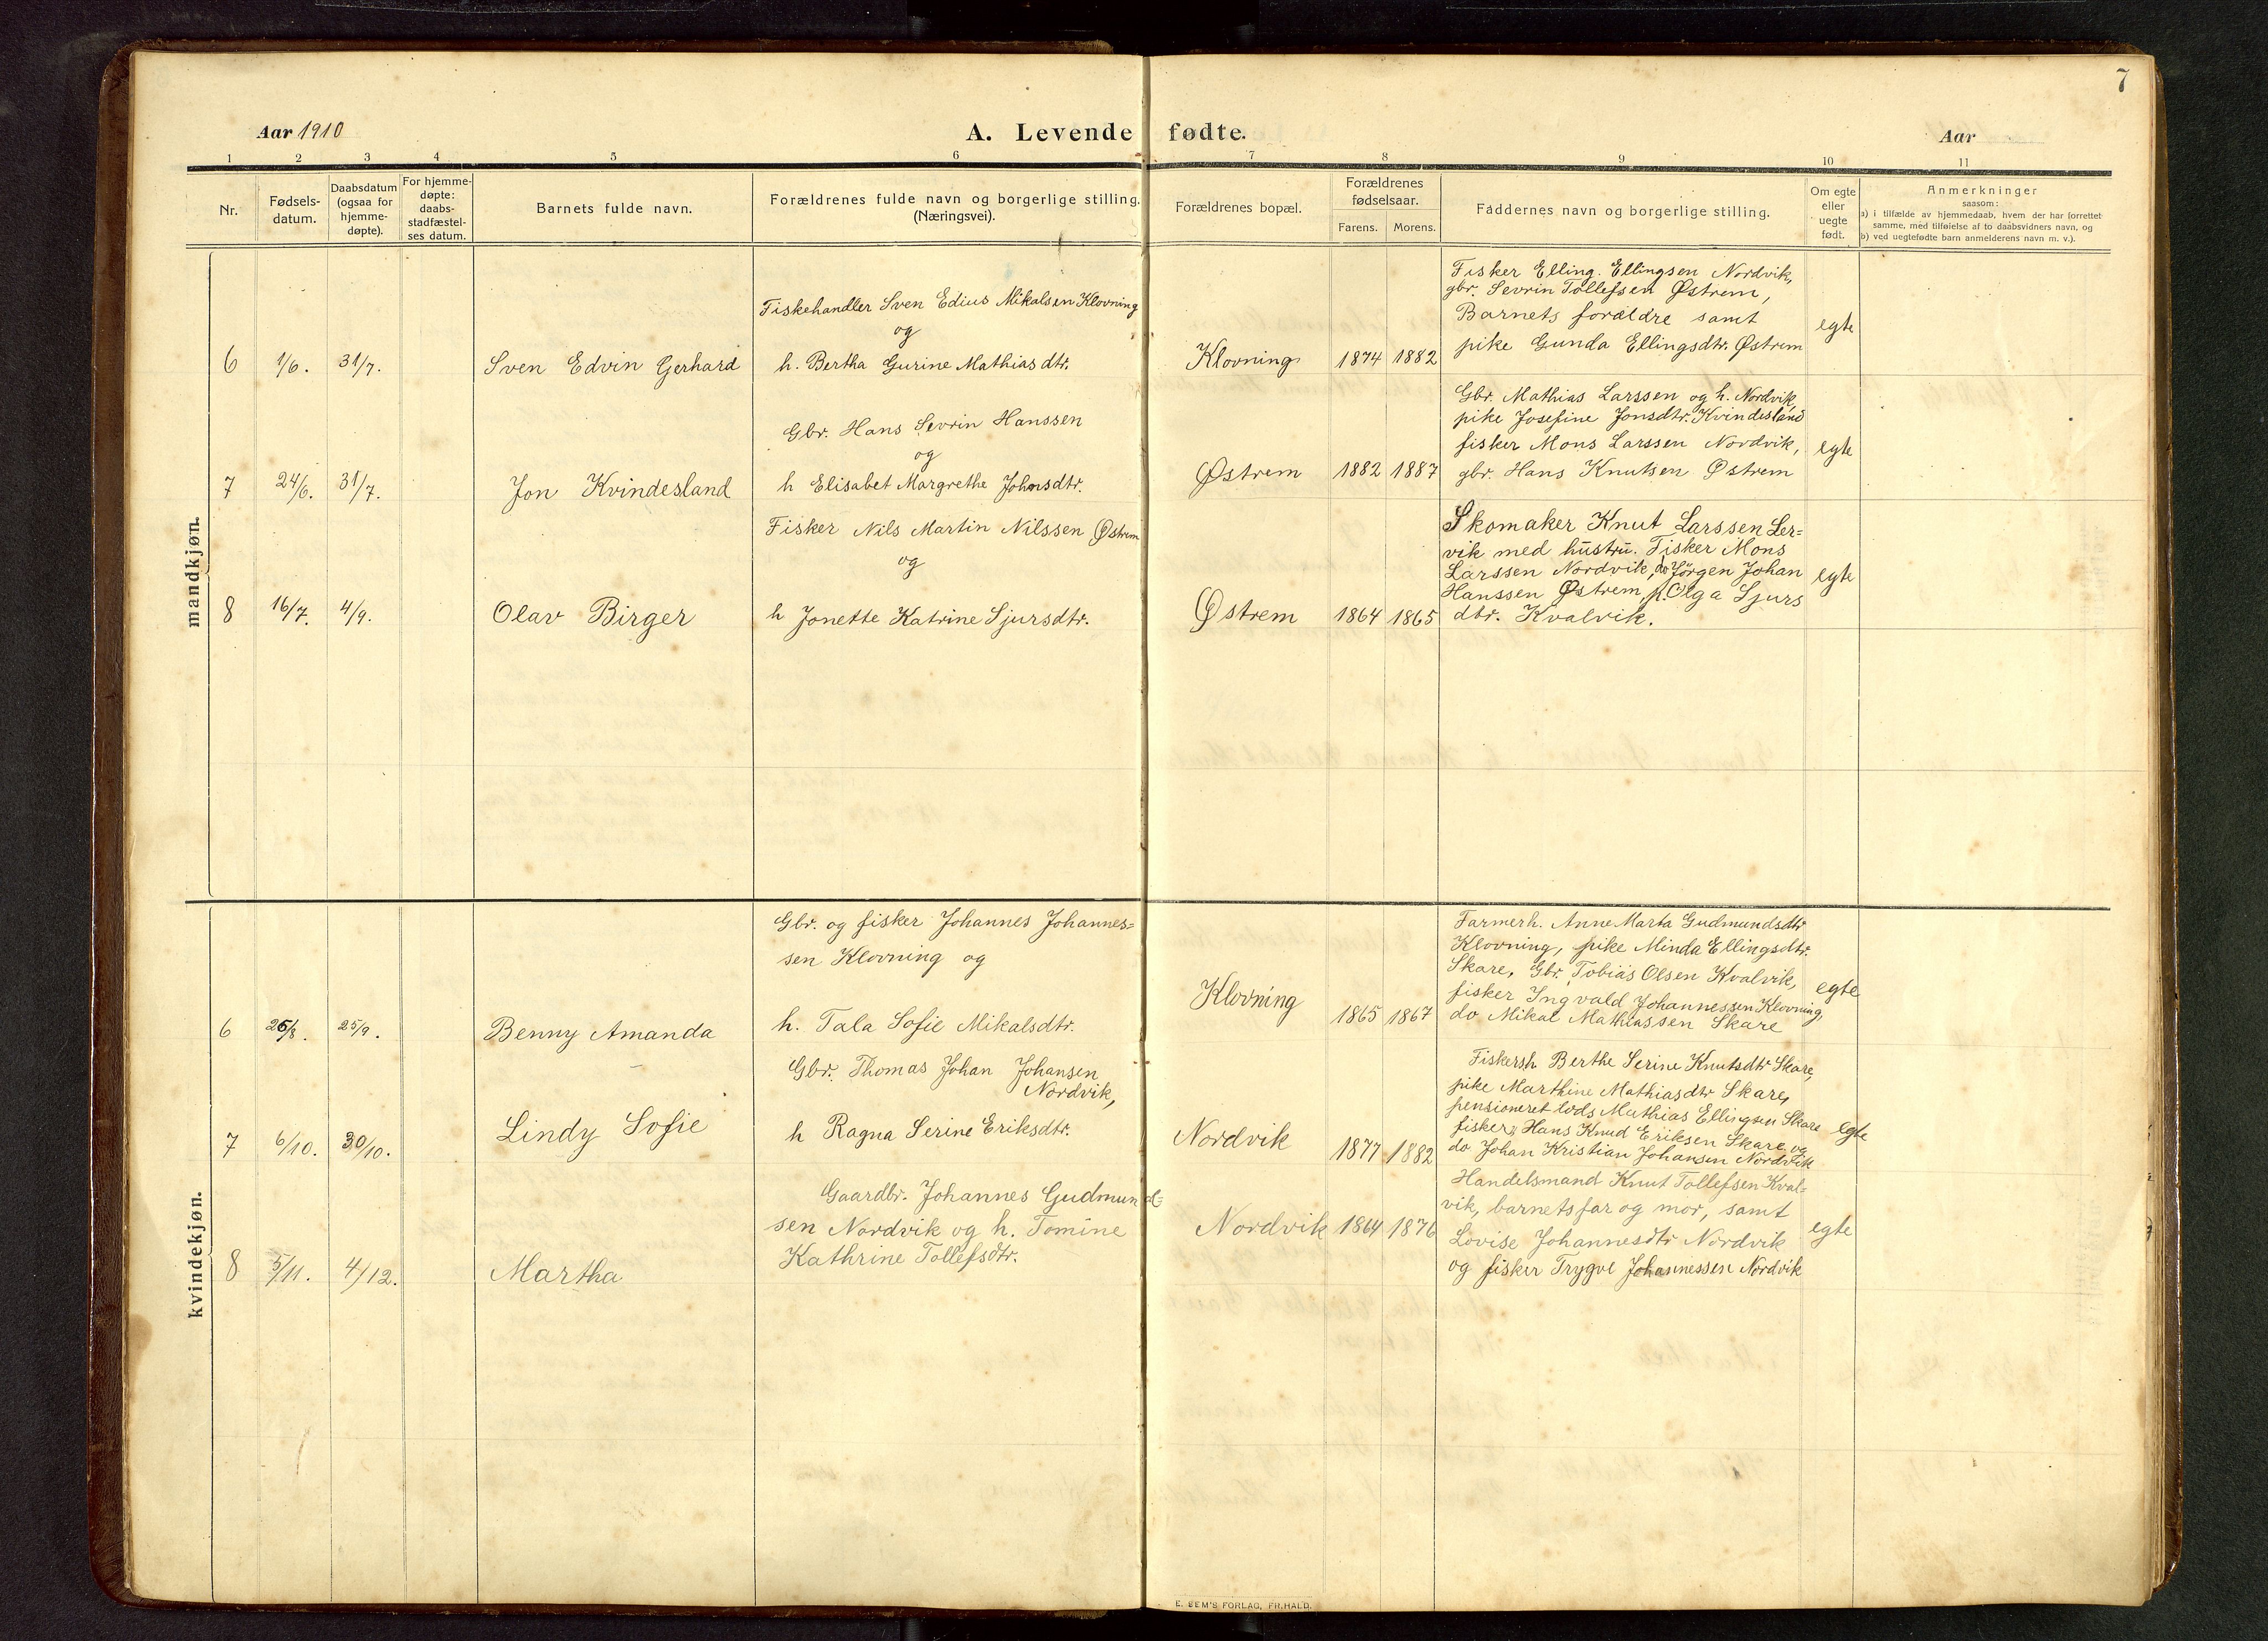 7
Aar 1910
A. Levende fødte.
Aar
1 2 3 4 5 6 7 8 9 10 11
Nr.
Fødsels-
datum.
Daabsdatum
(ogsaa for
hjemme-
døpte).
For hjemme-
døpte:
daabs-
stadfæstel-
ses datum.
Barnets fulde navn.
Forældrenes fulde navn og borgerlige stilling.
(Næringsvei).
Forældrenes bopæl.
Forældrenes
fødselsaar.
Farens. Morens.
Faddernes navn og borgerlige stilling.
Om egte
eller
uegte
født.
Anmerkninger
saasom:
a) i tilfælde av hjemmedaab, hvem der har forrettet
samme, med tilføielse af to daabsvidners navn, og
b) ved uegtefødte barn anmelderens navn m. v.).
mandkjøn.
6 1/6. 31/7. Sven Edvin Gerhard
Fiskehandler Sven Edius Mikalsen Klovning
og
h. Bertha Gurine Mathiasdtr.
Klovning 1874 1882
Fisker Elling. Ellingsen Nordvik,
gbr. Sevrin Tollefsen Østrem,
Barnets forældre samt
pike Gunda Ellingsdtr. Østrem
egte
7 24/6. 31/7. Jon Kvindesland
Gbr. Hans Sevrin Hanssen
og
h Elisabet Margrethe Johnsdtr.
Østrem 1882 1887
Gbr. Mathias Larssen og h. Nordvik,
pike Josefine Jonsdtr. Kvindesland
fisker Mons Larssen Nordvik,
gbr. Hans Knutsen Østrem
egte
8 16/7. 4/9. Olav Birger
Fisker Nils Martin Nilssen Østrem
og
h Jonette Katrine Sjursdtr.
Østrem 1864 1865
Skomaker Knut Larssen Ler=
vik med hustru. Fisker Mons
Larssen Nordvik, do Jörgen Johan
Hanssen Østrem, p. Olga Sjurs
dtr. Kvalvik.
egte
kvindekjøn.
6 25/8. 25/9. Benny Amanda
Gbr. og fisker Johannes Johannes=
sen Klovning og
h. Tala Sofie Mikalsdtr.
Klovning 1865 1867
Farmerh. Anne Marta Gudmundsdtr
Klovning, pike Minda Ellingsdtr.
Skare, Gbr. Tobias Olsen Kvalvik,
fisker Ingvald Johannessen Klovning,
do Mikal Mathiassen Skare
egte
7 6/10. 30/10. Lindy Sofie
Gbr. Thomas Johan Johansen
Nordvik,
h Ragna Serine Eriksdtr.
Nordvik 1877 1882
Fiskersh Berthe Serine Knutsdtr Skare,
pike Marthine Mathiasdtr Skare,
pensioneret lods Mathias Ellingsen Skare
fisker Hans Knud Eriksen Skare og
do Johan Kristian Johansen Nordvik
egte
8 5/11. 4/12. Martha
Gaardbr. Johannes Gudmund=
sen Nordvik og h. Tomine
Kathrine Tollefsdtr.
Nordvik 1864 1876
Handelsmand Knut Tollefsen Kval=
vik, barnets far og mor, samt
Lovise Johannesdtr Nordvik
og fisker Trygve Johannessen Nordvik
egte
E. SEM'S FORLAG, FR.HALD.